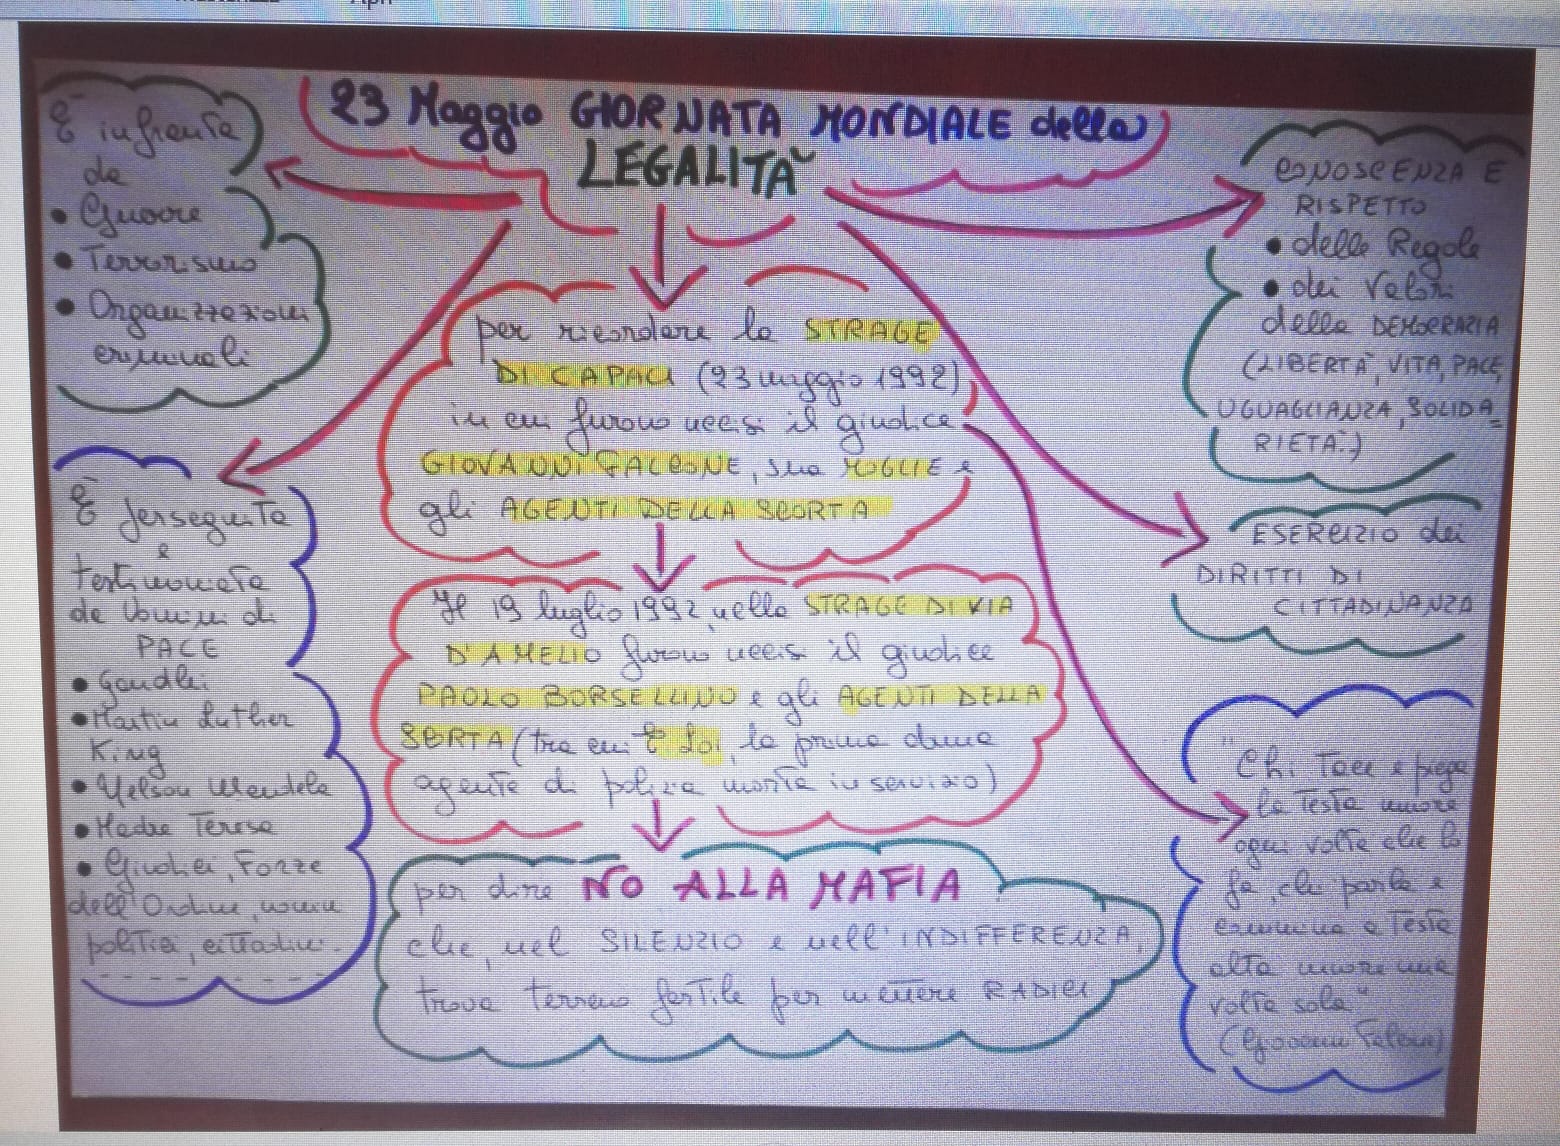 23 Maggio GIORNATA MONDIALE della
LEGALITÀ
È infranta
da
• Guerre
• Terrorismo
• Organizzazioni
criminali
È perseguita
e
testimoniata
da Uomini di
PACE
• Gandhi
• Martin Luther
King
• Nelson Mandela
• Madre Teresa
• Giudici, Forze
dell'Ordine, uomini
politici, cittadini
per ricordare la STRAGE
DI CAPACI (23 maggio 1992)
in cui furono uccisi il giudice
GIOVANNI FALCONE, sua MOGLIE e
gli AGENTI DELLA SCORTA
Il 19 luglio 1992, nella STRAGE DI VIA
D'AMELIO furono uccisi il giudice
PAOLO BORSELLINO e gli AGENTI DELLA
SCORTA (tra cui E. Loi, la prima donna
agente di polizia morta in servizio)
per dire NO ALLA MAFIA
che, nel SILENZIO e nell'INDIFFERENZA,
trova terreno fertile per mettere RADICI
CONOSCENZA E
RISPETTO
• delle Regole
• dei Valori
della DEMOCRAZIA
(LIBERTÀ, VITA, PACE,
UGUAGLIANZA, SOLIDA=
RIETÀ.)
ESERCIZIO dei
DIRITTI DI
CITTADINANZA
"Chi tace e piega
la testa muore
ogni volta che lo
fa, chi parla e
cammina a testa
alta muore una
volta sola"
(Giovanni Falcone)